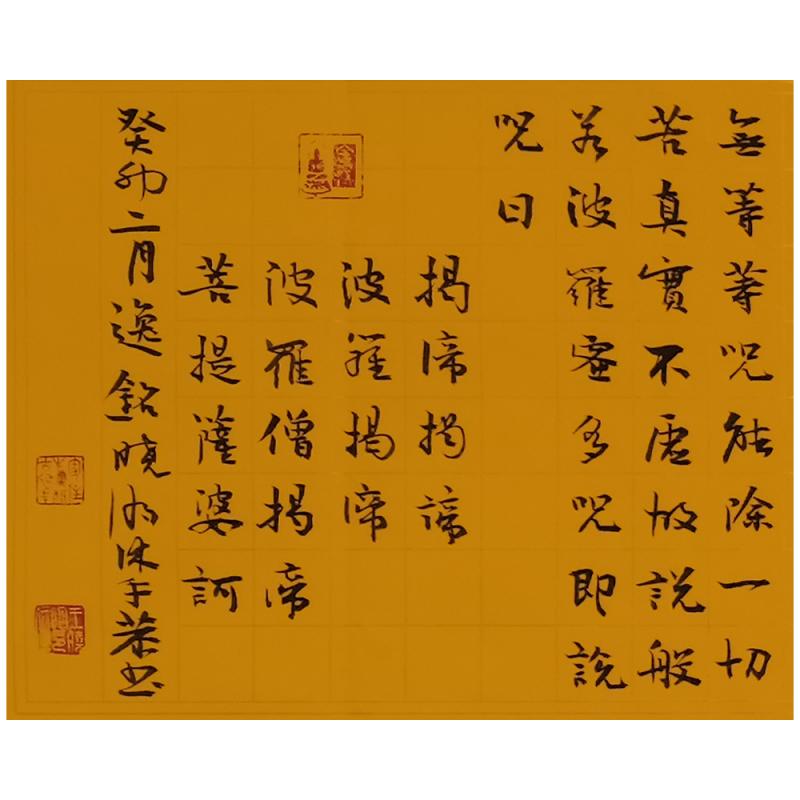 無等等呪能除一切
苦真實不虛故説般
若波羅蜜多呪即説
呪曰
揭諦揭諦
波羅揭諦
波羅僧揭諦
菩提薩婆訶
癸卯二月逸銘曉湖沐手恭書